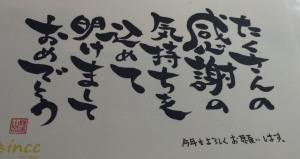 たくさんの
感謝の
気持ちを
込めて
明けまして
おめでとう
今年もよろしくお願いします。
sincc